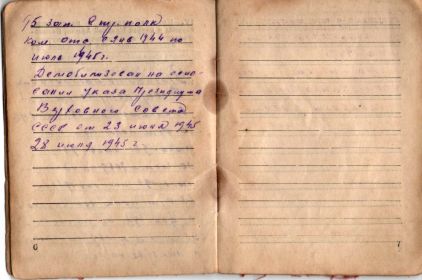 75 зап. стр. полк
ком. отд. с янв 1944 по
июль 1945 г.
Демобилизован на осно-
вании указа Президиума
Верховного Совета
СССР от 23 июня 1945
28 июня 1945 г
6
7